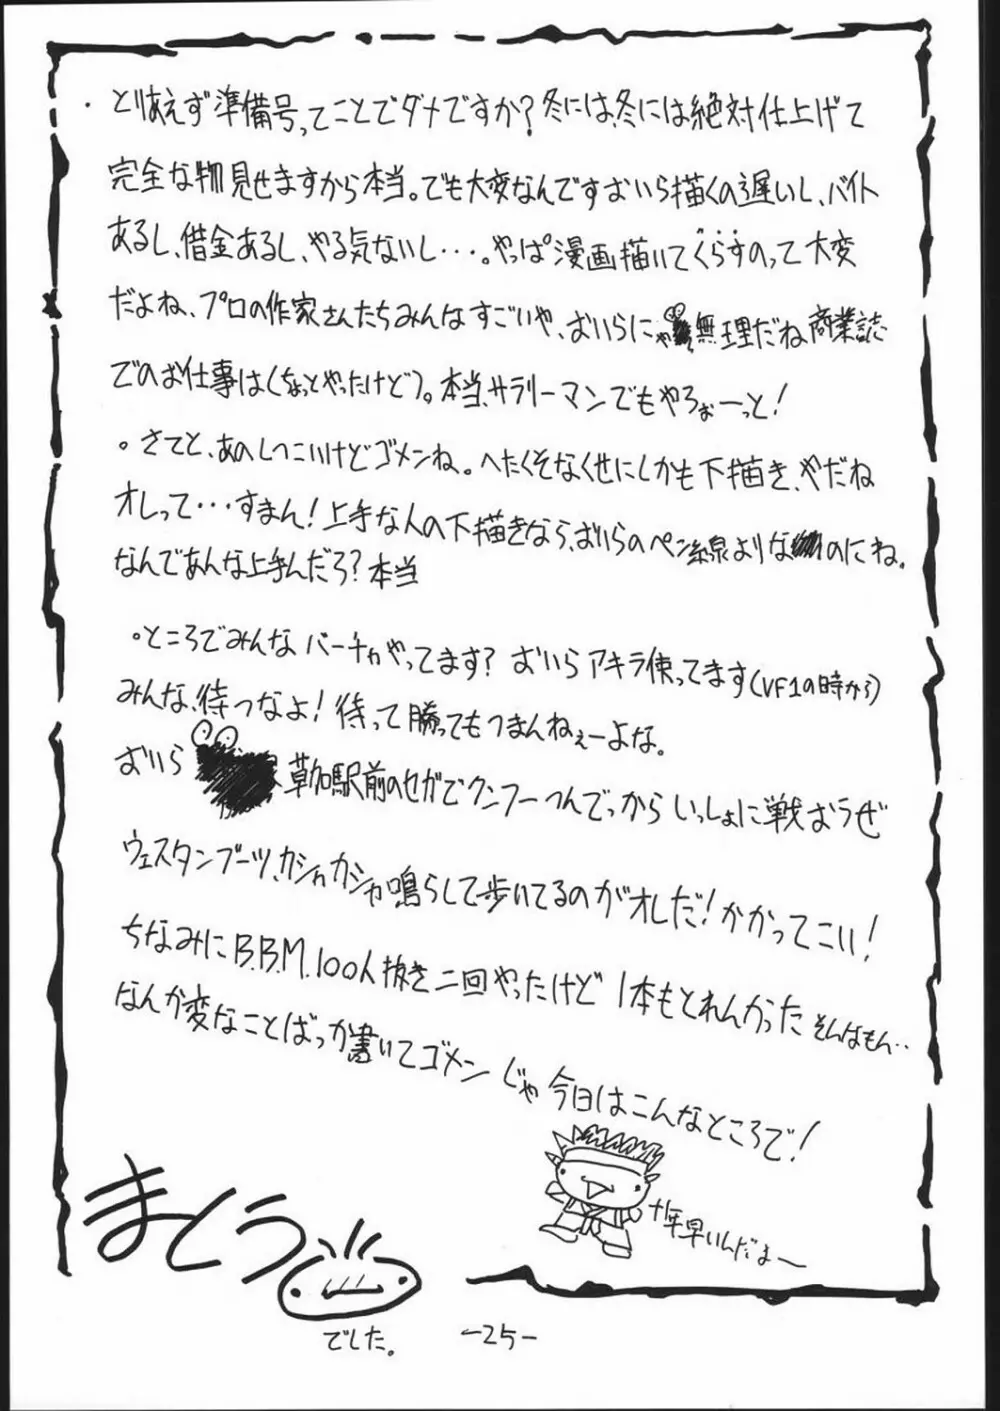 ・とりあえず準備号ってことでダメですか？冬には、冬には絶対仕上げて
完全な物見せますから本当。でも大変なんですおいら描くの遅いし、バイト
あるし、借金あるし、やる気ないし・・・。やっぱ漫画描いてくらすのって大変
だよね、プロの作家さんたちみんなすごいや、おいらにゃ無理だね商業誌
でのお仕事は(ちょっとやったけど)。本当、サラリーマンでもやろぉーっと！
。さてと、あのしつこいけどゴメンね。へたくそなくせにしかも下描き、やだね
オレって・・・すまん！上手な人の下描きなら、おいらのペン線よりな のにね。
なんであんな上手んだろ？本当
。ところでみんなバーチャやってます？おいらアキラ使ってます(VF1の時から)
みんな、待つなよ！待って勝ってもつまんねぇーよな。
おいら 草加駅前のセガでクンフーつんでっからいっしょに戦おうぜ
ウェスタンブーツ、カシャカシャ鳴らして歩いてるのがオレだ！かかってこい！
ちなみにB.B.M.100人抜き二回やったけど1本もとれんかった そんなもん・・
なんか変なことばっか書いてゴメン じゃ今日はこんなところで！
十年早いんだよー
まとう
でした。
-25-